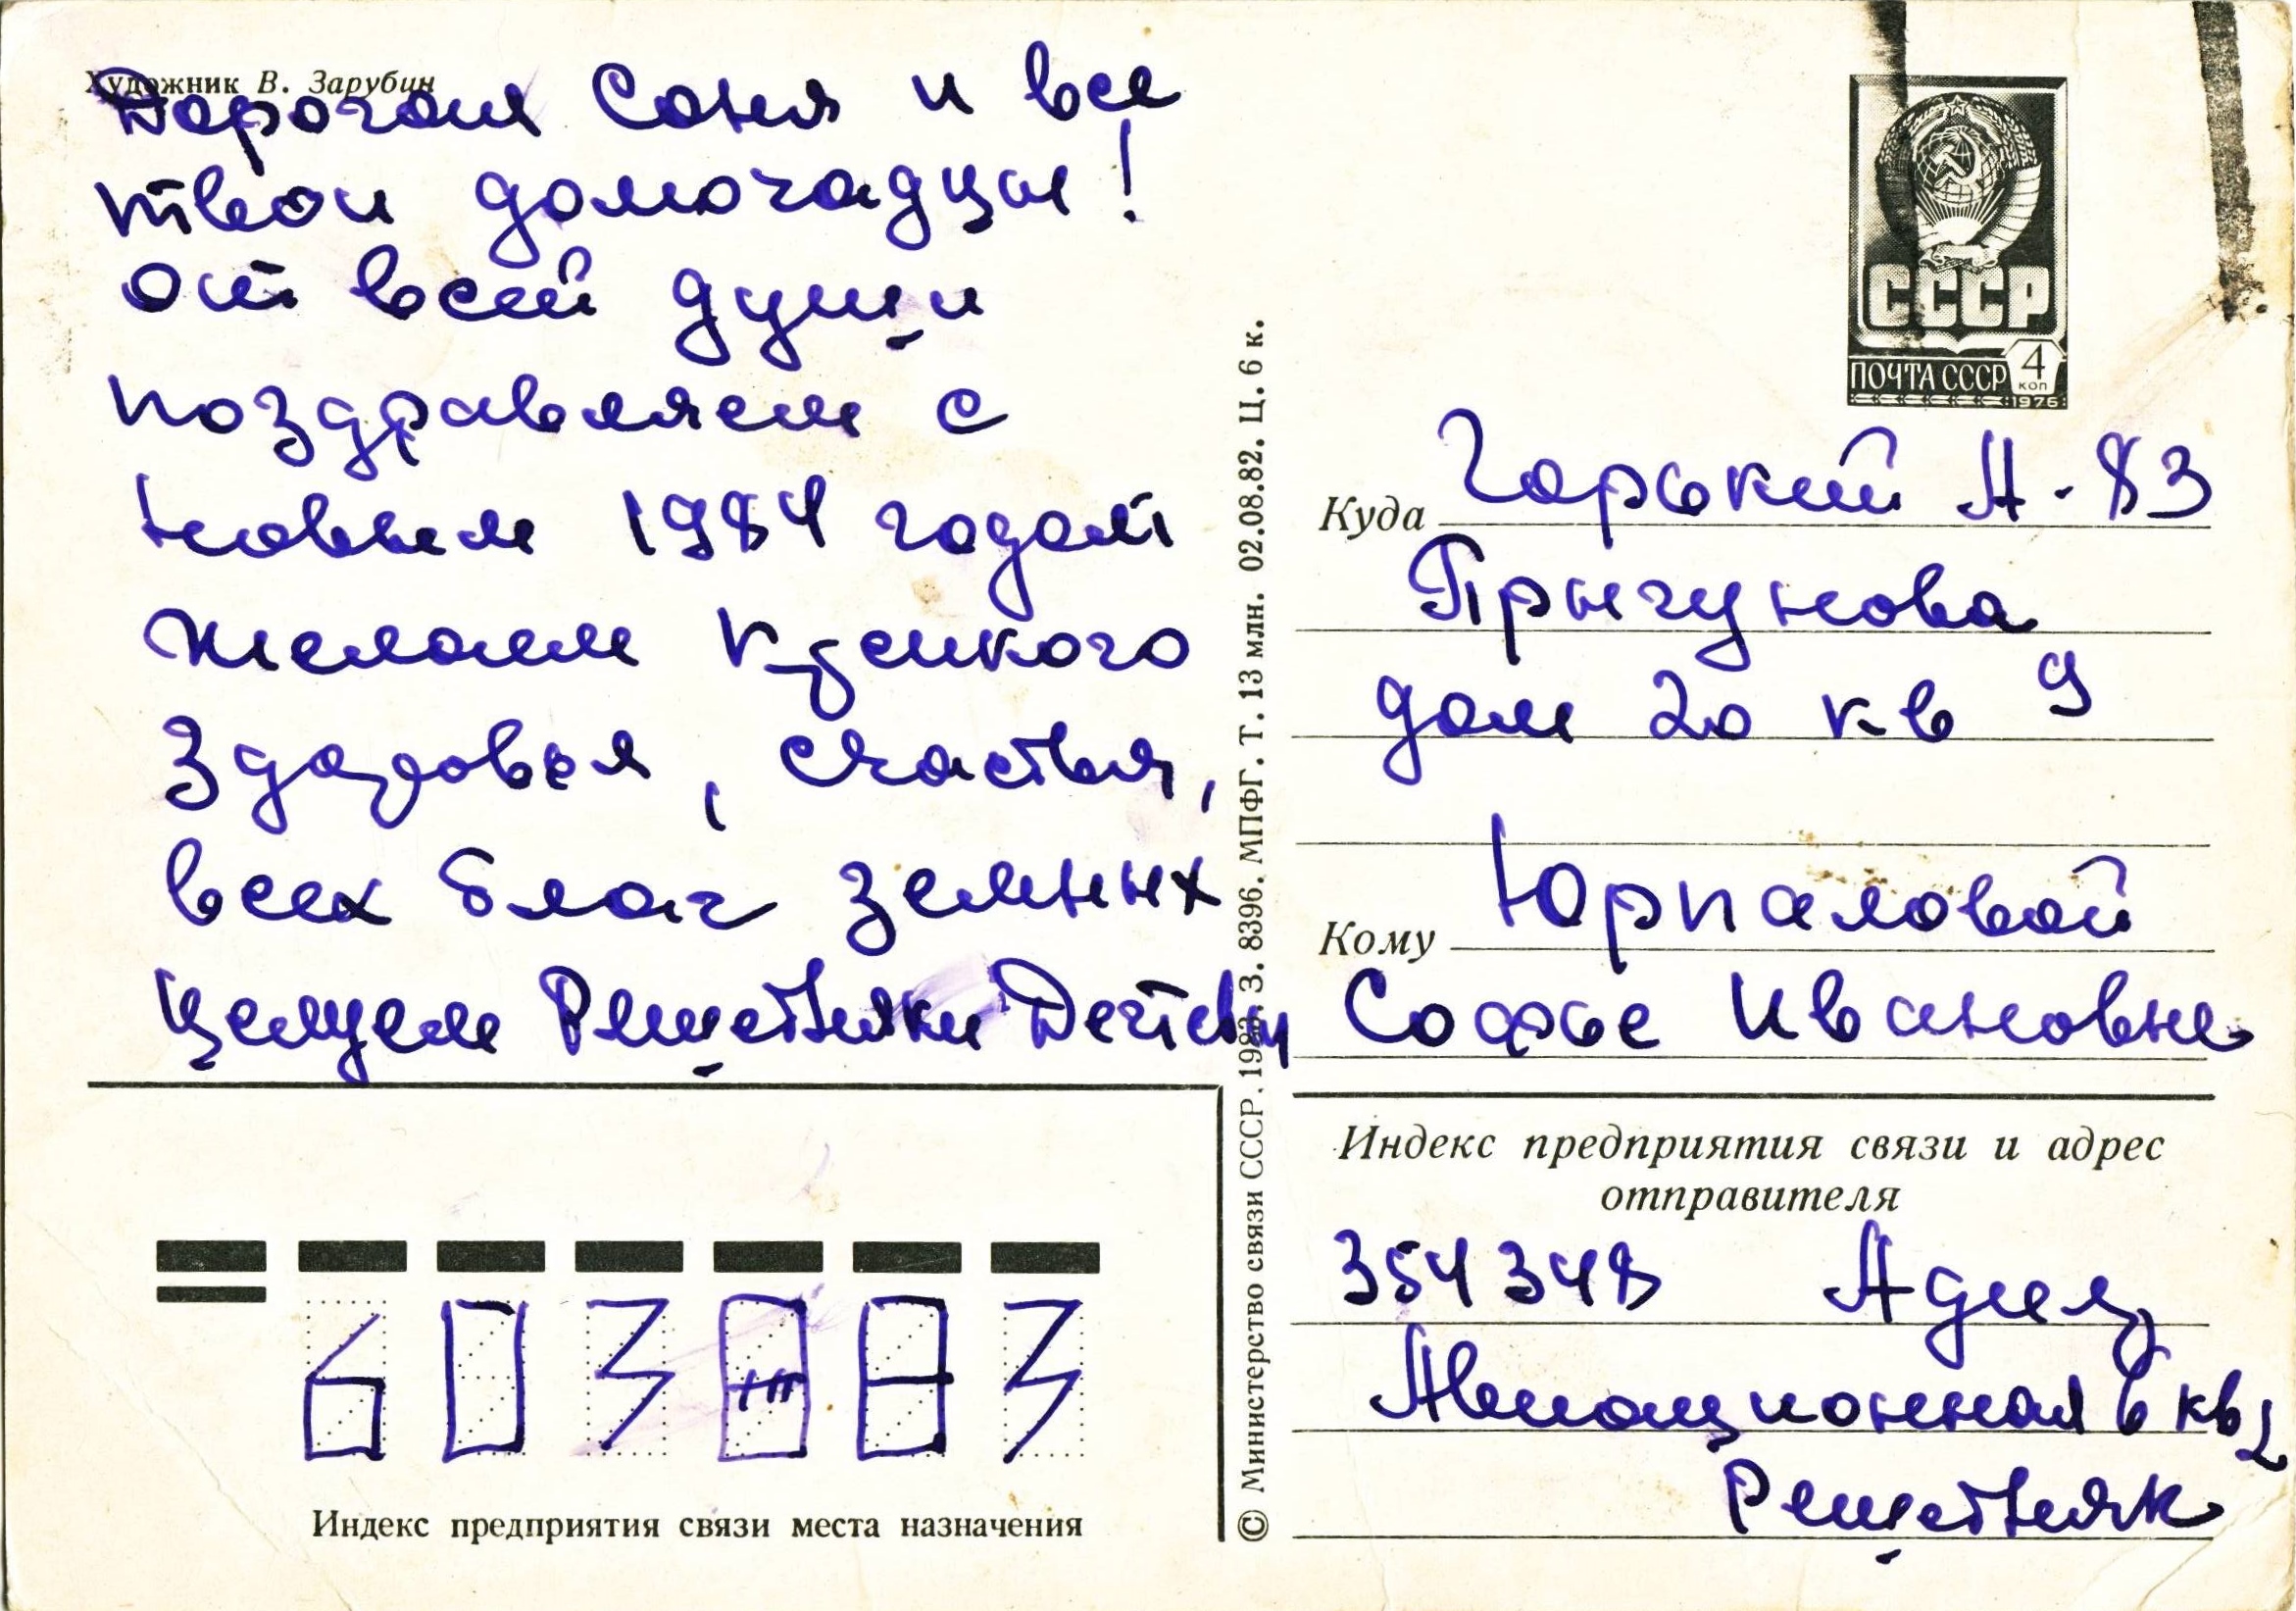 Художник В. Зарубин
Дорогая Соня и все
твои домочадцы!
От всей души
поздравляем с
Новым 1984 годом
желаем крепкого
здоровья, счастья,
всех благ земных
целуем Решетняки
СССР
4
коп
ПОЧТА СССР
1976
Куда Горький А-83
Прыгунова
дом 20 кв 9
Кому Юрпаловой
Софье Ивановне
Индекс предприятия связи и адрес
отправителя
354348 Адлер
Авиационная 6 кв 2
Решетняк
603083
Индекс предприятия связи места назначения
© Министерство связи СССР. 1982. З. 8396. МПФГ. Т. 13 млн. 02.08.82. Ц. 6 к.